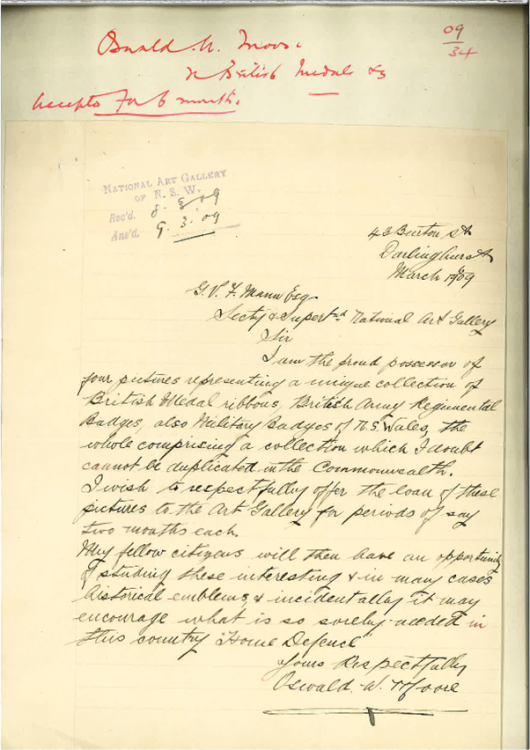 09
34
Oswald W. Moore
re British Medals &c
Accepts For 6 months.
NATIONAL ART GALLERY
OF N. S. W.
Rec'd. 8. 3. 09
Ans'd. 9. 3. 09
43 Burton St
Darlinghurst
March 1909
G. V. F. Mann Esq.
Secty & Supertnd National Art Gallery
Sir
I am the proud possessor of
four pictures representing a unique collection of
British Medal ribbons, British Army Regimental
Badges, also Military Badges of N S Wales, the
whole comprising a collection which I doubt
cannot be duplicated in the Commonwealth.
I wish to respectfully offer the loan of these
pictures to the Art Gallery for periods of say
two months each.
My fellow citizens will then have an opportunity
of studing these interesting & in many cases
historical emblems, & incidentally it may
encourage what is so sorely needed in
this country "Home Defence"
Yours Respectfully
Oswald. W. Moore